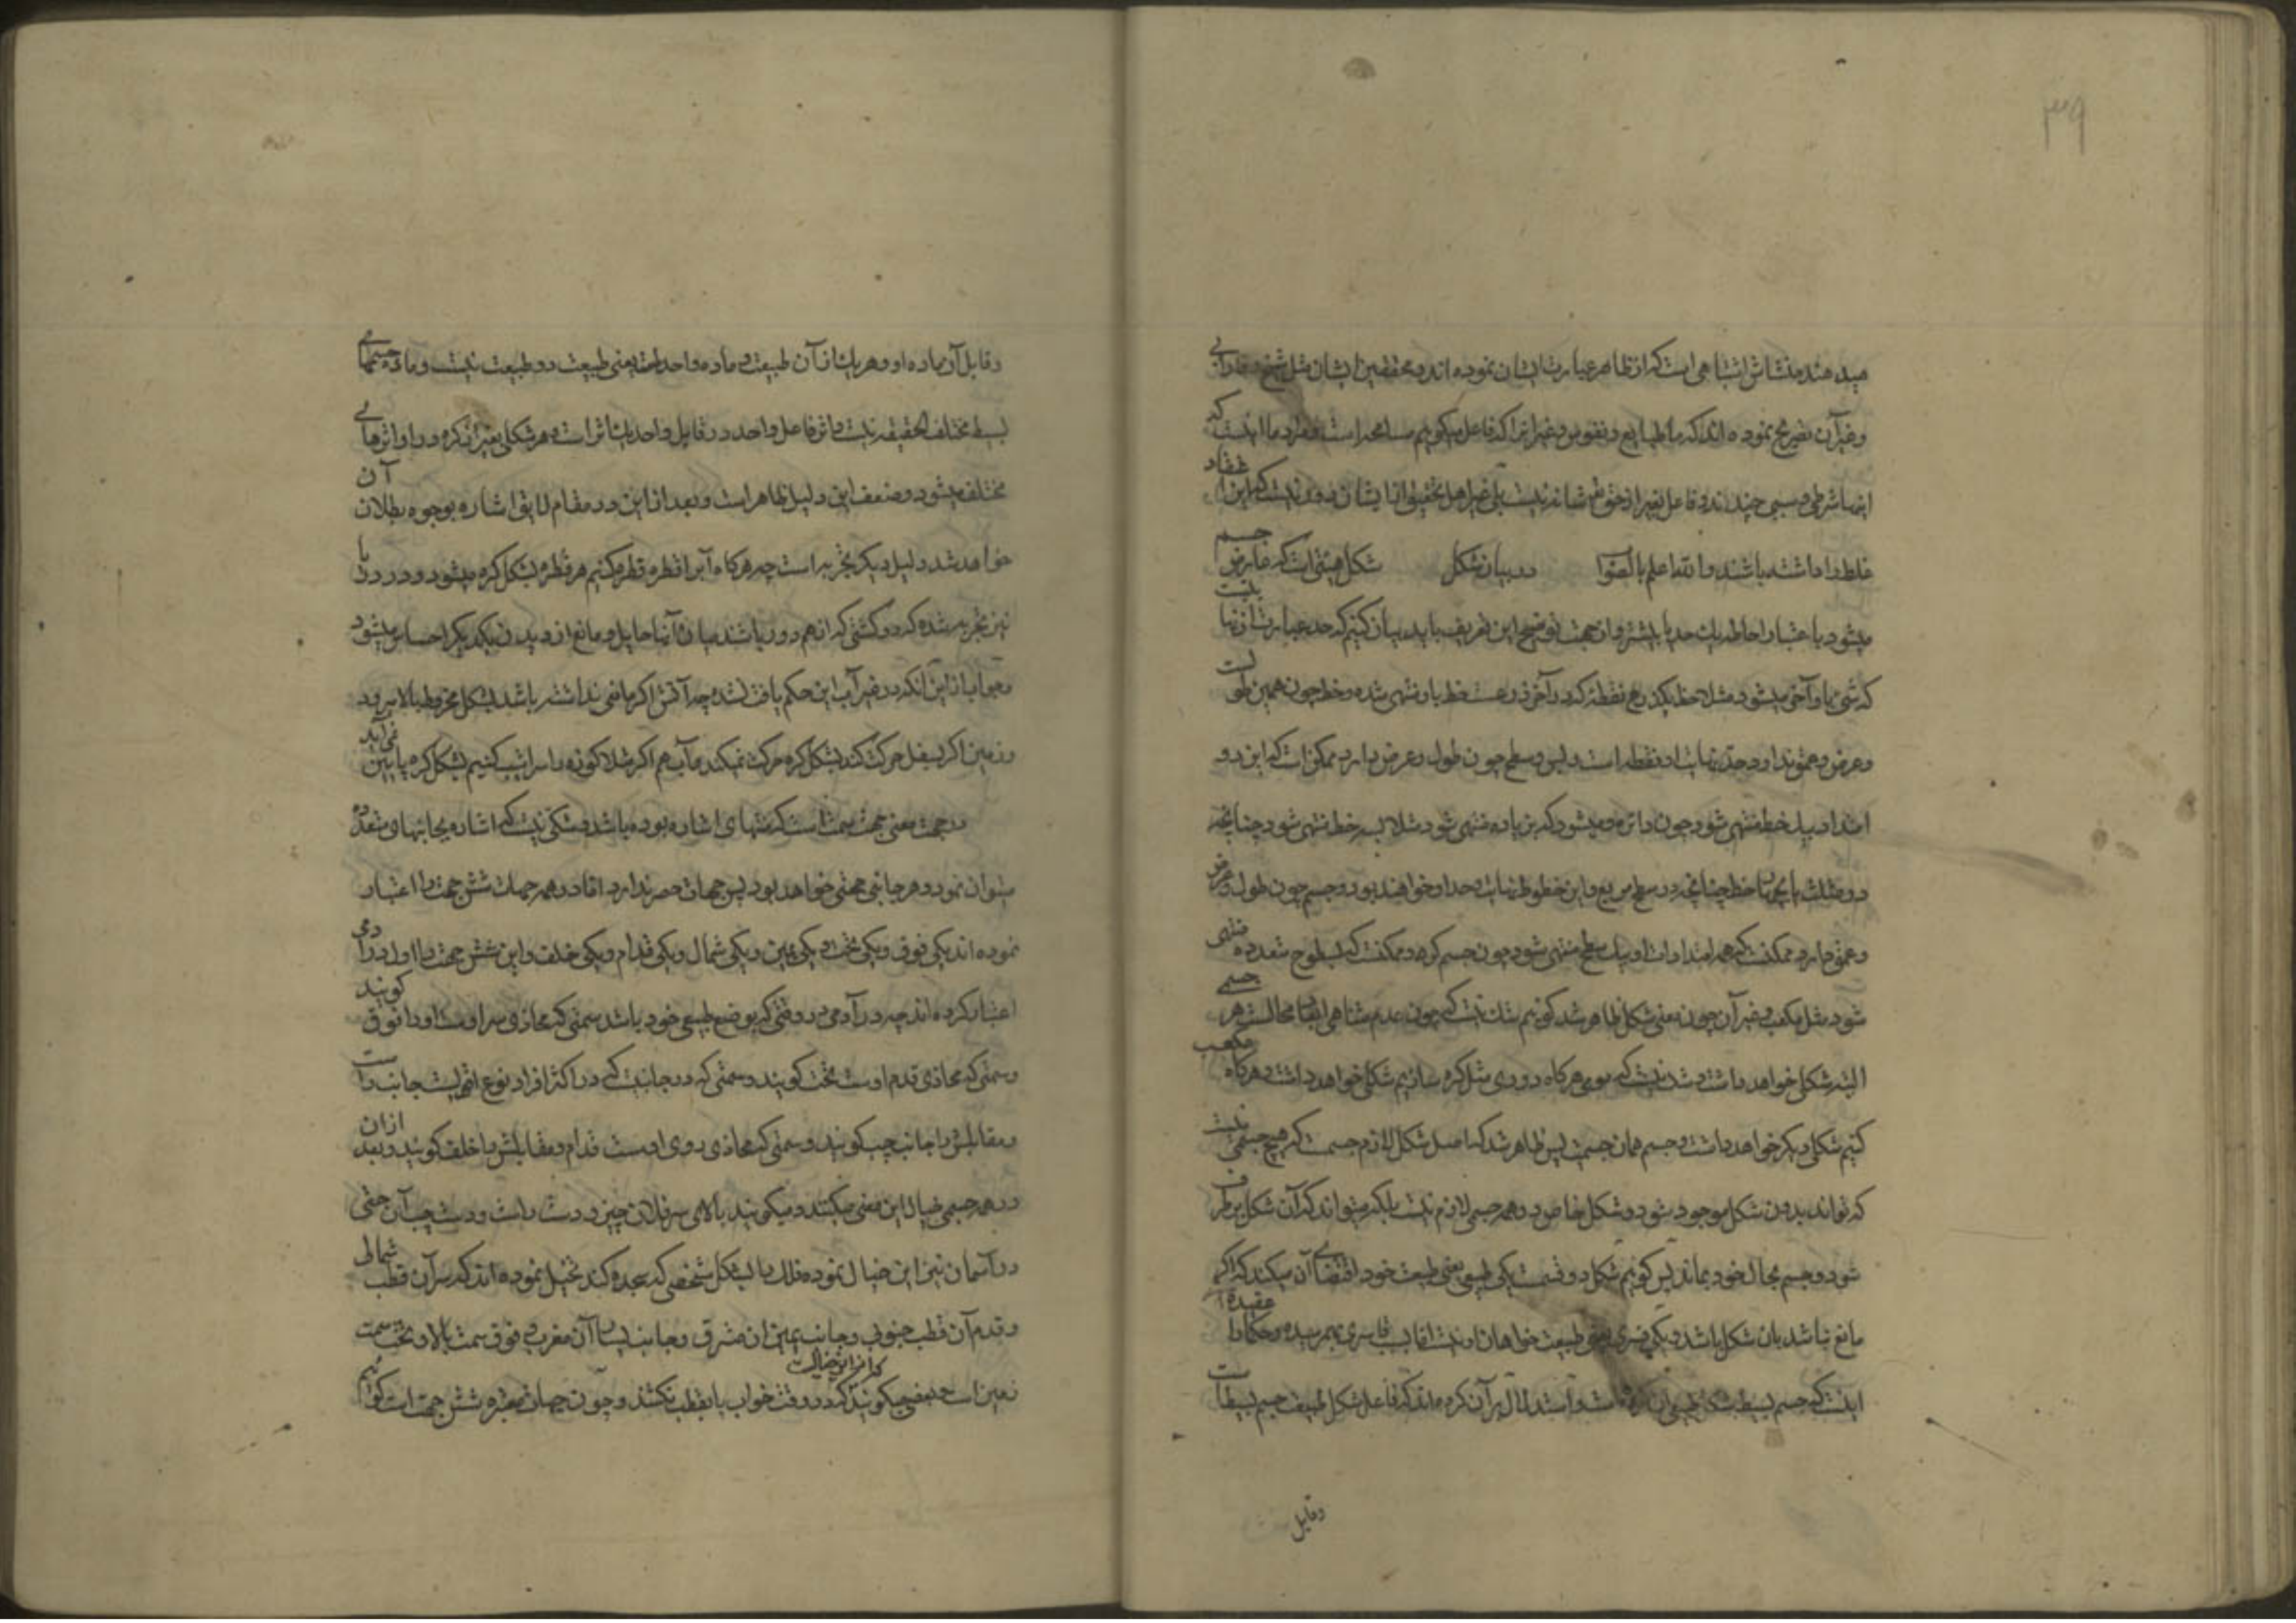 ۳۹
میدهند منشاش اشتباهی است که از ظاهر عبارت ایشان نموده اند و محققین ایشان مثل شیخ و فارابی
و غیر آن تصریح نموده اند که ما طبایع و نفوس و غیر انرا که فاعل میکوییم مسامحه است و مراد ما اینست که
اینها شرطی و سببی چندند و فاعل بغیر از حق تعالی نیست بلی غیر اهل تحقیق از ایشان دور نیست که این اعتقاد
غلط را داشته باشند والله اعلم بالصواب در بیان شکل شکل هیئتی است که عارض جسم
میشود باعتبار احاطه یک حد یا بیشتر و از جهت توضیح این تعریف باید بیان کنیم که حد عبارت از نهایتیست
که شیء باو آخر میشود مثلا خط یکذرع نقطهٔ که در آخر ذرعست خط باو منتهی شده و خط چون همین طولست
و عرض و عمق ندارد حد و نهایت او نقطه است و بس و سطح چون طول و عرض دارد ممکن است که این دو
امتداد بیک خط منتهی شود چون دائره و میشود که بزیاده منتهی شود مثلا بسه خط منتهی شود چنانچه
در مثلث یا بچهار خط چنانچه در سطح مربع و این خطوط نهایت و حد او خواهند بود و جسم چون طول و عرض
و عمق دارد ممکنست که همه امتدادات او بیک سطح منتهی شود چون جسم کره و ممکنست که بسطوح متعدده منتهی
شود مثل مکعب و غیر آن چون معنی شکل ظاهر شد کوئیم شک نیست که چون عدم تناهی ابعاد محالست هر جسمی
البته شکل خواهد داشت و شک نیست که مومی هرکاه دوری مثل کره سازیم شکلی خواهد داشت و هرکاه مکعب
کنیم شکلی دیکر خواهد داشت و جسم همان جسمست پس ظاهر شد که اصل شکل لازم جسمست که هیچ جسمی نیست
که تواند بدون شکل موجود شود و شکل خاص در همه جسمی لازم نیست بلکه میتواند که آن شکل برطرف
شود و جسم بحال خود بماند پس کوئیم شکل دو قسمست یکی طبیعی یعنی طبیعت خود اقتضای آن میکند که اکر
مانع نباشد بان شکل باشد و یکی قسری یعنی طبیعت خواهان او نیست اما بسبب قاسری بهم رسیده و حکما را عقیده
اینست که جسم بسیط شکل طبیعی آن کره است و استدلال بر آن کرده اند که فاعل شکل طبیعت جسم بسیط است
وقابل
و قابل آن ماده او و هر یک از آن طبیعت و ماده واحد است یعنی طبیعت دو طبیعت نیست و ماده جسمهای
بسیط مختلف الحقیقه نیست و اثر فاعل واحد در قابل واحد یک اثر است و هر شکلی بغیر از کره در او اثرهای
مختلف میشود و ضعف این دلیل ظاهر است و بعد از این در مقام لایق اشاره بوجوه بطلان آن
خواهد شد دلیل دیکر تجربه است چه هرکاه آبرا قطره قطره کنیم هر قطره بشکل کره میشود و در دریا
نیز تجربه شده که دو کشتی که از هم دور باشند میان آنها حایل و مانع از دیدن یکدیکر احساس میشود
و جواب از این آنکه در غیر آب این حکم یافت نشده چه آتش اکر مانعی نداشته باشد بشکل مخروط بالا میرود
و زمین اکر بسفل حرکت کند بشکل کره حرکت نمیکند و آب هم اکر مثلا کوزه را سراشیب کنیم بشکل کره پایین نمی آید
در جهت معنی جهت سمتست که منتهای اشاره بوده باشد و شکی نیست که اشاره بجانبهای متعدده
میتوان نمود و هر جانبی جهتی خواهد بود پس جهات حصر ندارد اما در همه جهات شش جهت را اعتبار
نموده اند یکی فوق و یکی تحت و یکی یمین و یکی شمال و یکی قدام و یکی خلف و این شش جهت را اولا در آدمی
اعتبار کرده اند چه در آدمی در وقتی که بوضع طبیعی خود باشد سمتی که محاذی سر اوست او را فوق کویند
و سمتی که محاذی قدم اوست تحت کویند و سمتی که در جانبیست که در اکثر افراد نوع اقویست جانب راست
و مقابلش را جانب چپ کویند و سمتی که محاذی روی اوست قدام و مقابلش را خلف کویند و بعد از ان
در همه جسمی خیال این معنی میکنند و میکویند بالای سر فلان چیز و دست راست و دست چپ آن حتی
در آسمان نیز این خیال نموده فلک را بشکل شخصی که سجده کند تخیل نموده اند که سر آن قطب شمالی
و قدم آن قطب جنوبی و جانب یمین ان مشرق و جانب یسار آن مغرب و فوق سمت بالا و تحت سمت
زمین است و بعضی میکویند که در وقت خواب پا بقطب نکشند و چون جهات معتبره شش جهت است کوئیم
که از این خیالست